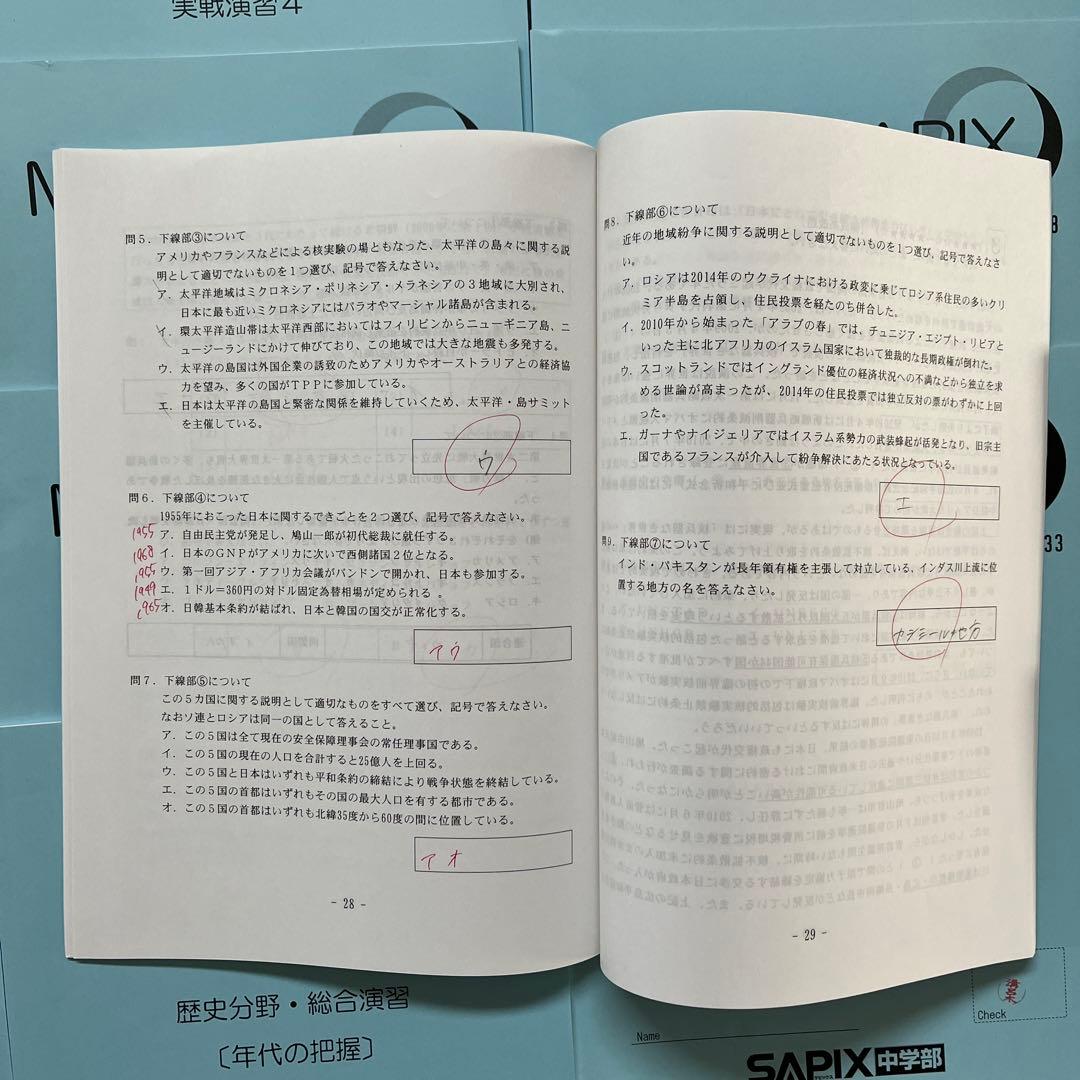 実戦演習4
SAPIX
8
33
問5．下線部③について
アメリカやフランスなどによる核実験の場ともなった、太平洋の島々に関する説
明として適切でないものを1つ選び、記号で答えなさい。
ア．太平洋地域はミクロネシア・ポリネシア・メラネシアの3地域に大別され、
日本に最も近いミクロネシアにはパラオやマーシャル諸島が含まれる。
イ．環太平洋造山帯は太平洋西部においてはフィリピンからニューギニア島、ニ
ュージーランドにかけて伸びており、この地域では大きな地震も多発する。
ウ．太平洋の島国は外国企業の誘致のためアメリカやオーストラリアとの経済協
力を望み、多くの国がTPPに参加している。
エ．日本は太平洋の島国と緊密な関係を維持していくため、太平洋・島サミット
を主催している。
ウ
問6．下線部④について
1955年におこった日本に関するできごとを2つ選び、記号で答えなさい。
1955 ア．自由民主党が発足し、鳩山一郎が初代総裁に就任する。
1968 イ．日本のGNPがアメリカに次いで西側諸国2位となる。
1955 ウ．第一回アジア・アフリカ会議がバンドンで開かれ、日本も参加する。
1949 エ．1ドル＝360円の対ドル固定為替相場が定められる。
1965 オ．日韓基本条約が結ばれ、日本と韓国の国交が正常化する。
アウ
問7．下線部⑤について
この5カ国に関する説明として適切なものをすべて選び、記号で答えなさい。
なおソ連とロシアは同一の国として答えること。
ア．この5国は全て現在の安全保障理事会の常任理事国である。
イ．この5国の現在の人口を合計すると25億人を上回る。
ウ．この5国と日本はいずれも平和条約の締結により戦争状態を終結している。
エ．この5国の首都はいずれもその国の最大人口を有する都市である。
オ．この5国の首都はいずれも北緯35度から60度の間に位置している。
アオ
- 28 -
問8．下線部⑥について
近年の地域紛争に関する説明として適切でないものを1つ選び、記号で答えなさ
い。
ア．ロシアは2014年のウクライナにおける政変に乗じてロシア系住民の多いクリ
ミア半島を占領し、住民投票を経たのち併合した。
イ．2010年から始まった「アラブの春」では、チュニジア・エジプト・リビアと
いった主に北アフリカのイスラム国家において独裁的な長期政権が倒れた。
ウ．スコットランドではイングランド優位の経済状況への不満などから独立を求
める世論が高まったが、2014年の住民投票では独立反対の票がわずかに上回
った。
エ．ガーナやナイジェリアではイスラム系勢力の武装蜂起が活発となり、旧宗主
国であるフランスが介入して紛争解決にあたる状況となっている。
エ
問9．下線部⑦について
インド・パキスタンが長年領有権を主張して対立している、インダス川上流に位
置する地方の名を答えなさい。
カシミール地方
- 29 -
歴史分野・総合演習
〔年代の把握〕
Check
Name
SAPIX中学部